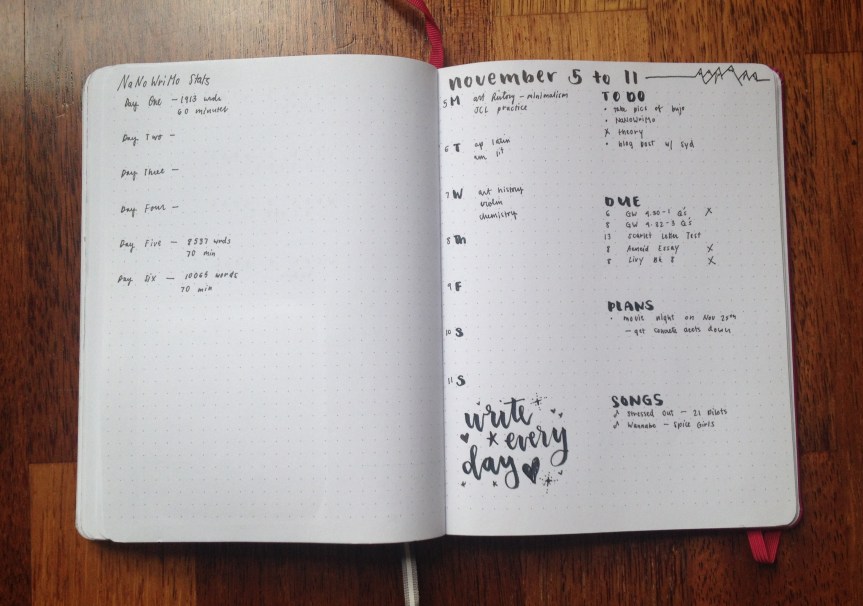 NaNoWriMo Stats
Day One - 1913 words
60 minutes
Day Two -
Day Three -
Day Four -
Day Five - 8537 words
70 min
Day Six - 10065 words
70 min
november 5 to 11
5 M art history - minimalism
JCL practice
6 T ap latin
am lit
7 W art history
violin
chemistry
8 Th
9 F
10 S
11 S
write
every
day
TO DO
• take pics of bujo
• NaNoWriMo
x theory
• blog post w/ Syd
DUE
6 GW 4.80-1 Q's X
8 GW 4.82-3 Q's
13 Scarlet Letter Test
8 Aeneid Essay X
8 Livy Bk 8 X
PLANS
• movie night on Nov 25th
- get concrete deets down
SONGS
♪ Stressed Out - 21 Pilots
♪ Wannabe - Spice Girls